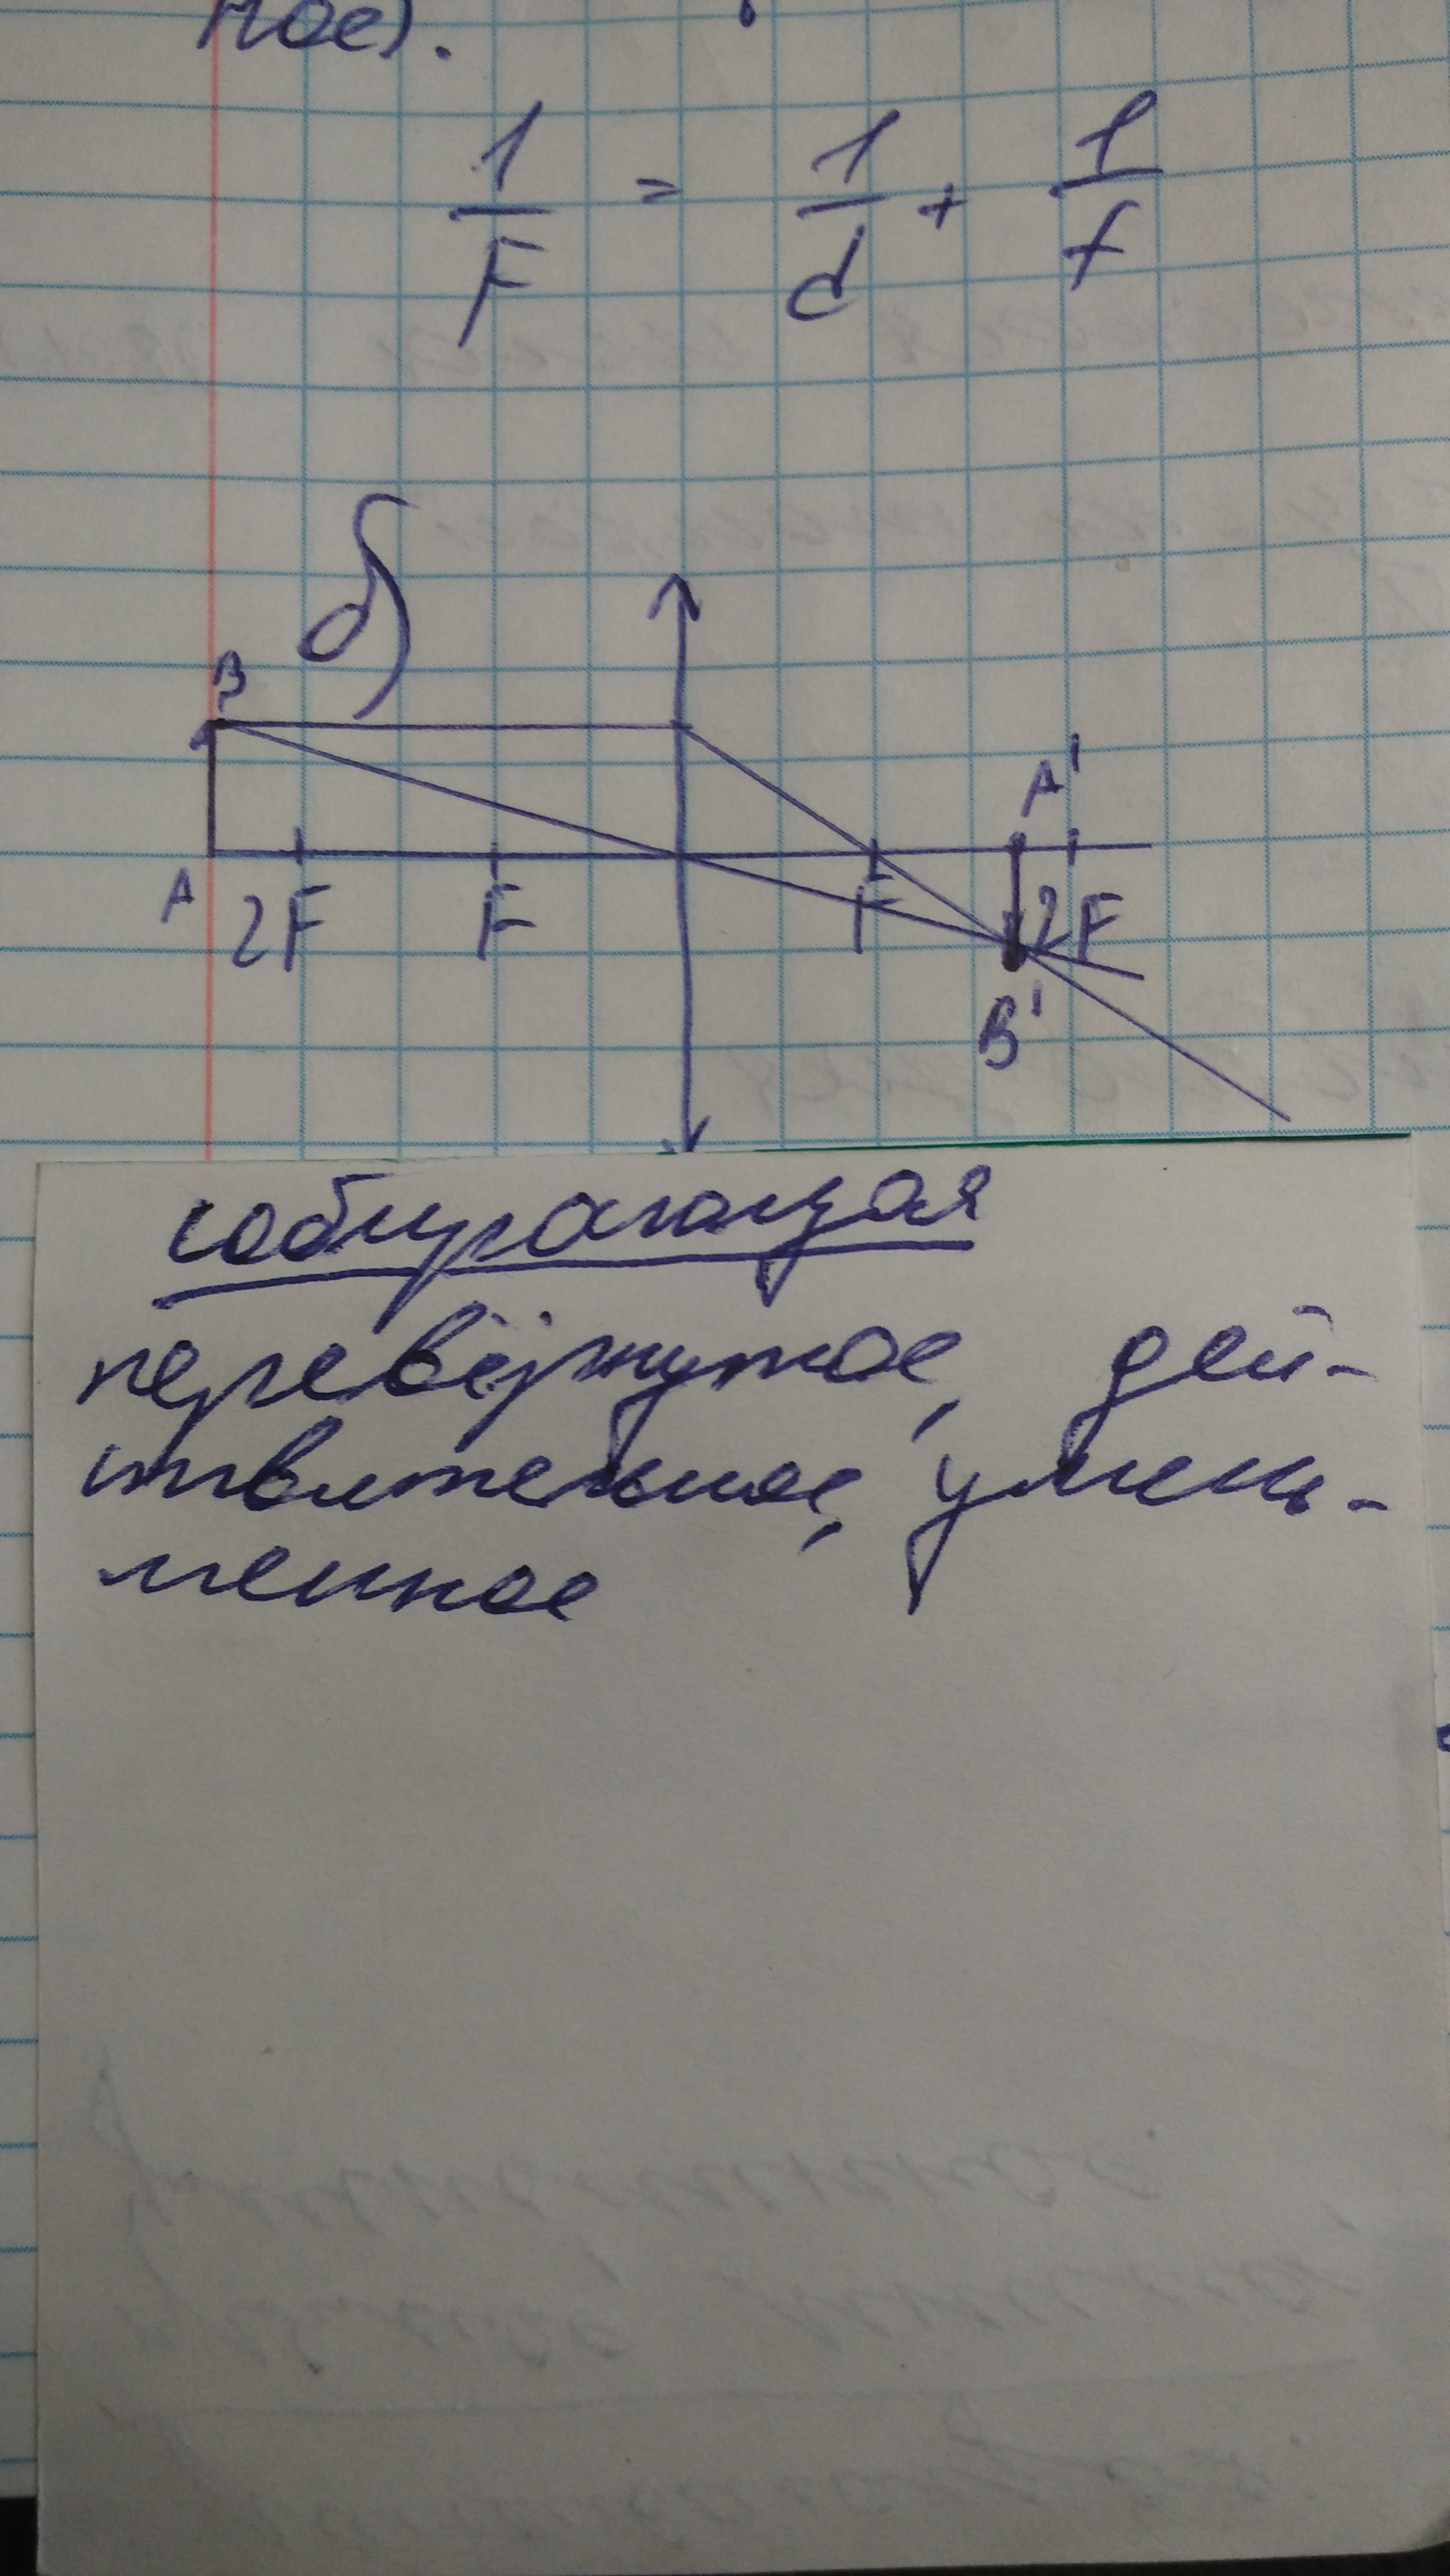 ное).
1/F = 1/d + 1/f
б)
B
A'
A 2F F F 2F
B'
собирающая
перевёрнутое, дей-
ствительное, умень-
шенное